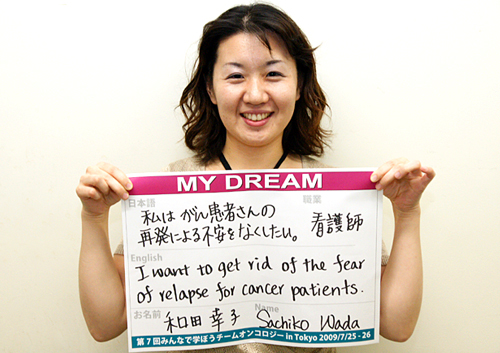 MY DREAM
日本語
職業
私は がん患者さんの
再発による不安をなくしたい。
看護師
English
I want to get rid of the fear
of relapse for cancer patients.
お名前
Name
和田 幸子 Sachiko Wada
第7回みんなで学ぼうチームオンコロジー in Tokyo 2009/7/25 - 26